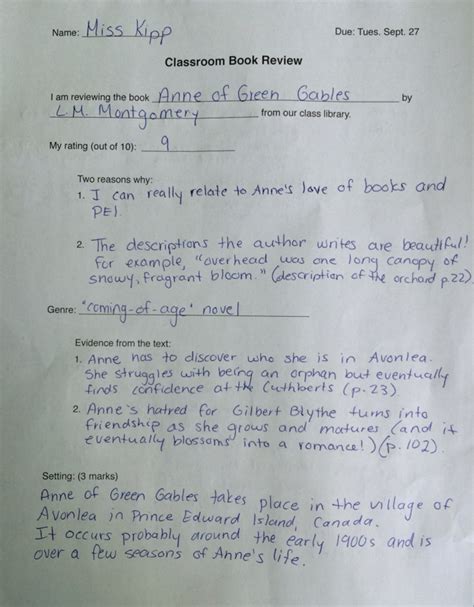 Name: Miss Kipp Due: Tues. Sept. 27
Classroom Book Review
I am reviewing the book Anne of Green Gables by
L.M. Montgomery from our class library.
My rating (out of 10): 9
Two reasons why:
1. I can really relate to Anne's love of books and
PEI.
2. The descriptions the author writes are beautiful!
For example, "overhead was one long canopy of
snowy, fragrant bloom." (description of the orchard p.22).
Genre: "coming-of-age" novel
Evidence from the text:
1. Anne has to discover who she is in Avonlea.
She struggles with being an orphan but eventually
finds confidence at the Cuthberts (p.23)
2. Anne's hatred for Gilbert Blythe turns into
friendship as she grows and matures (and it
eventually blossoms into a romance!) (p.102).
Setting: (3 marks)
Anne of Green Gables takes place in the village of
Avonlea in Prince Edward Island, Canada.
It occurs probably around the early 1900s and is
over a few seasons of Anne's life.